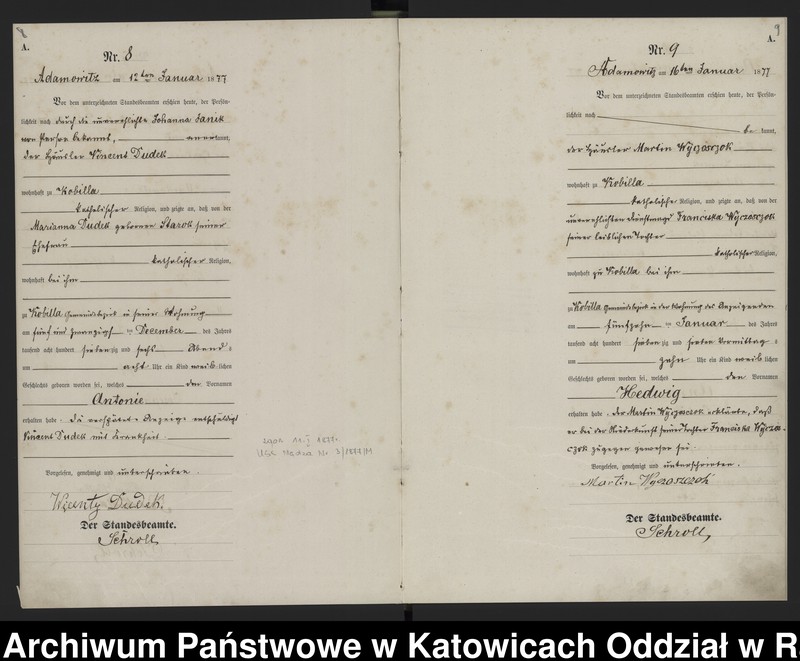 A.
Nr. 8
Adamowitz am 12ten Januar 1877
Vor dem unterzeichneten Standesbeamten erschien heute, der Persön-
lichkeit nach durch die unverehlichte Johanna Janik
von Person bekannt, anerkannt,
der Häusler Vincent Dudek
wohnhaft zu Kobilla
katholischer Religion, und zeigte an, daß von der
Marianna Dudek geborenen Starok seiner
Ehefrau
katholischer Religion,
wohnhaft bei ihm
zu Kobilla Gemeindebezirk in seiner Wohnung
am fünf und zwanzigsten December des Jahres
tausend acht hundert siebenzig und sechs Abends
um acht Uhr ein Kind weiblichen
Geschlechts geboren worden sei, welches den Vornamen
Antonie
erhalten habe. Die verspätete Anzeige entschuldigt
Vincent Dudek mit Krankheit
Vorgelesen, genehmigt und unterschrieben.
Wicenty Dudek.
Der Standesbeamte.
Schroll
zgon
1877r.
USC Nr. 3/1877/M
9
A.
Nr. 9
Adamowitz am 16ten Januar 1877
Vor dem unterzeichneten Standesbeamten erschien heute, der Persön-
lichkeit nach
bekannt,
der Häusler Martin Wyczoszczok
wohnhaft zu Kobilla
katholischer Religion, und zeigte an, daß von der
unverehlichten Dienstmagd Franciska Wyczoszczok
seiner leiblichen Tochter
katholischer Religion,
wohnhaft zu Kobilla bei ihm
zu Kobilla Gemeindebezirk in der Wohnung des Anzeigenden
am fünfzehn ten Januar des Jahres
tausend acht hundert siebenzig und sieben Vormittags
um zehn Uhr ein Kind weiblichen
Geschlechts geboren worden sei, welches den Vornamen
Hedwig
erhalten habe. Der Martin Wyczoszczok erklärte, daß
er bei der Niederkunft seiner Tochter Franciska Wyczosz-
czok zugegen gewesen sei.
Vorgelesen, genehmigt und unterschrieben.
Martin Wyczoszczok
Der Standesbeamte.
Schroll
Archiwum Państwowe w Katowicach Oddział w R